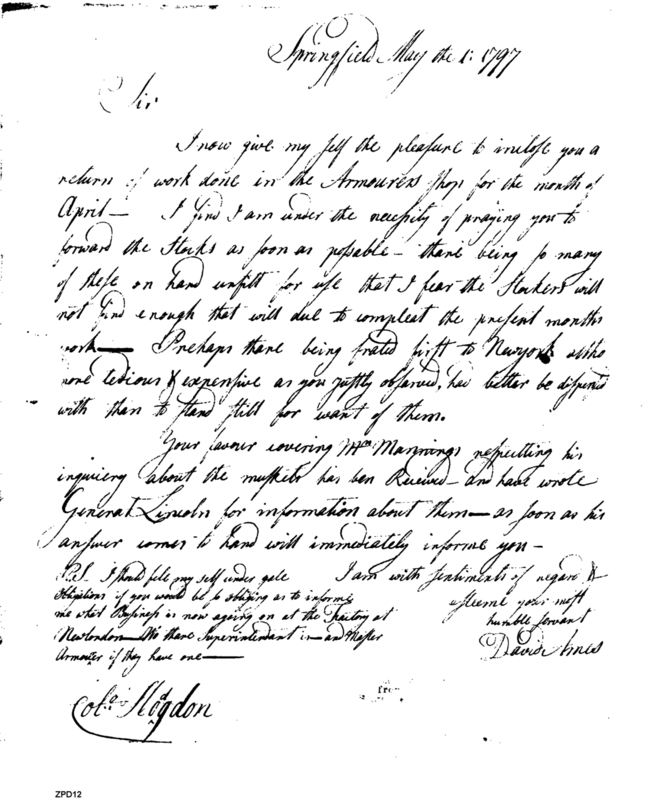 Springfield May the 1: 1797
Sir
I now give my self the pleasure to inclose you a
return of work done in the Armourers shop for the month of
April — I find I am under the necessity of praying you to
forward the Stocks as soon as possable — thare being so many
of these on hand unfitt for use that I fear the Stockers will
not find enough that will due to compleat the present months
work — Prehaps thare being frated first to Newyork altho
more tedious & expensive as you justly observed, had better be dispensed
with than to stand still for want of them.
Your favour covering Mr Mannings respecting his
inquiery about the muskets has ben Received — and have wrote
General Lincoln for information about them — as soon as his
answer comes to hand will immediately informe you —
I am with sentiments of regard &
esteeme your most
humble servant
David Ames
P.S. I should fele my self under gate
Obligations if you would be so obliging as to informe
me what Business is now agoing on at the Factory at
Newlondon — Who thare Superintendant is — and Master
Armourer if they have one —
Colo Hodgdon
ZPD12